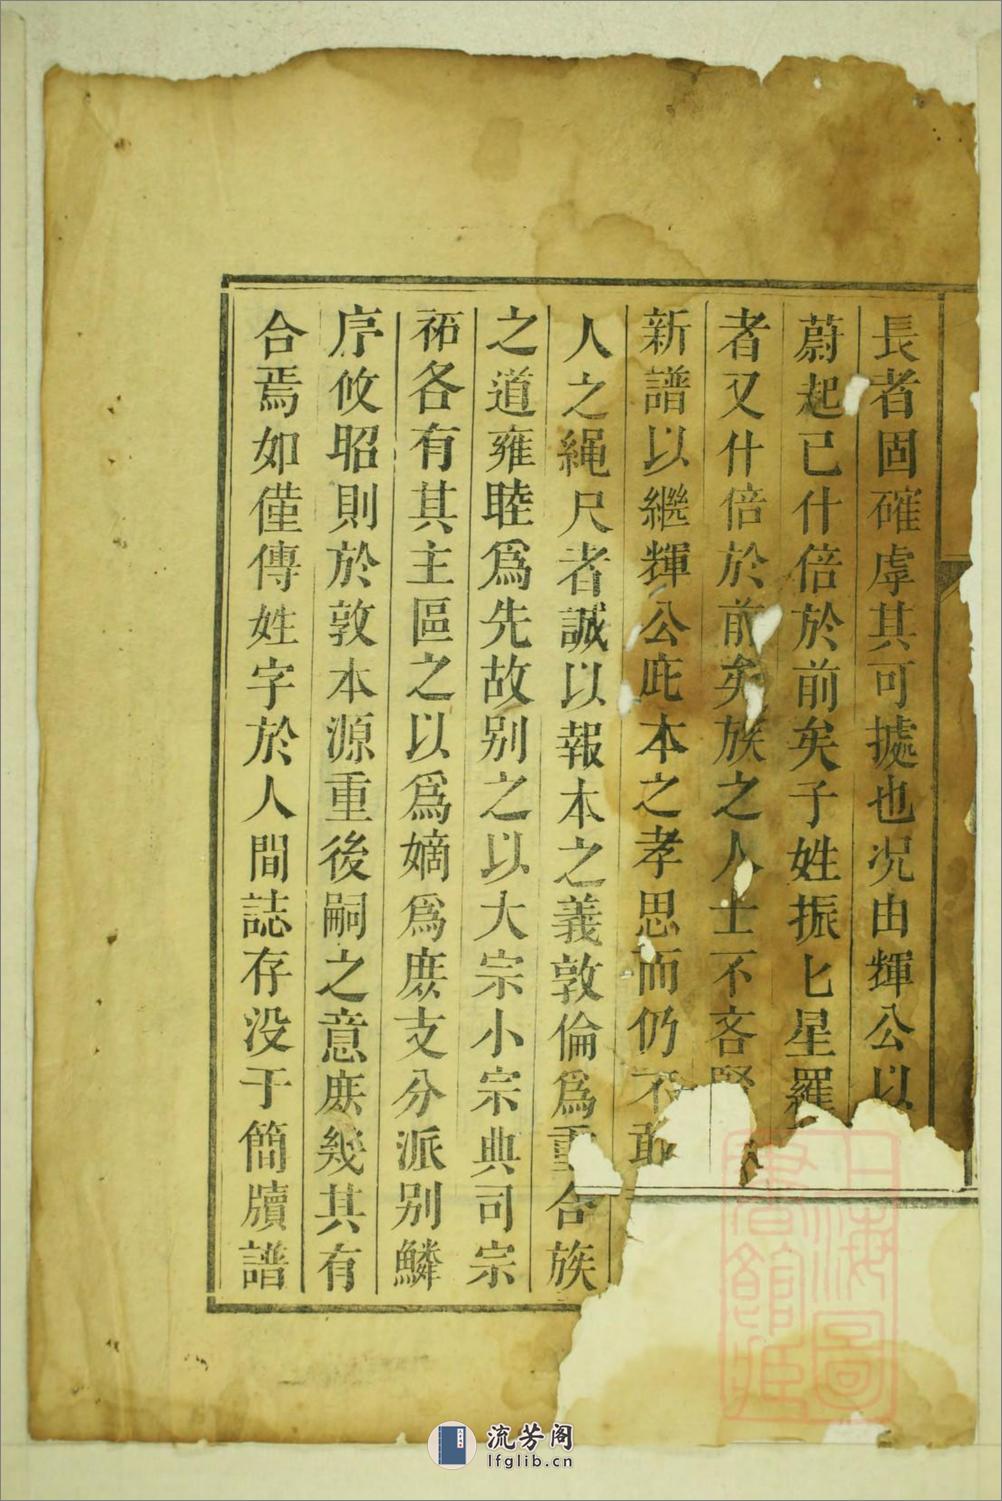 長者固確虖其可據也况由輝公以
蔚起已什倍於前矣子姓振匕星羅
者又什倍於前矣族之人士不吝
新譜以繼輝公庇本之孝思而仍不敢
人之繩尺者誠以報本之義敦倫爲重合族
之道雍睦爲先故别之以大宗小宗典司宗
祏各有其主區之以爲嫡爲庶支分派别鱗
序攸昭則於敦本源重後嗣之意庶幾其有
合焉如僅傳姓字於人間誌存没于簡牘譜
上海圖
書館
流芳阁
lfglib.cn